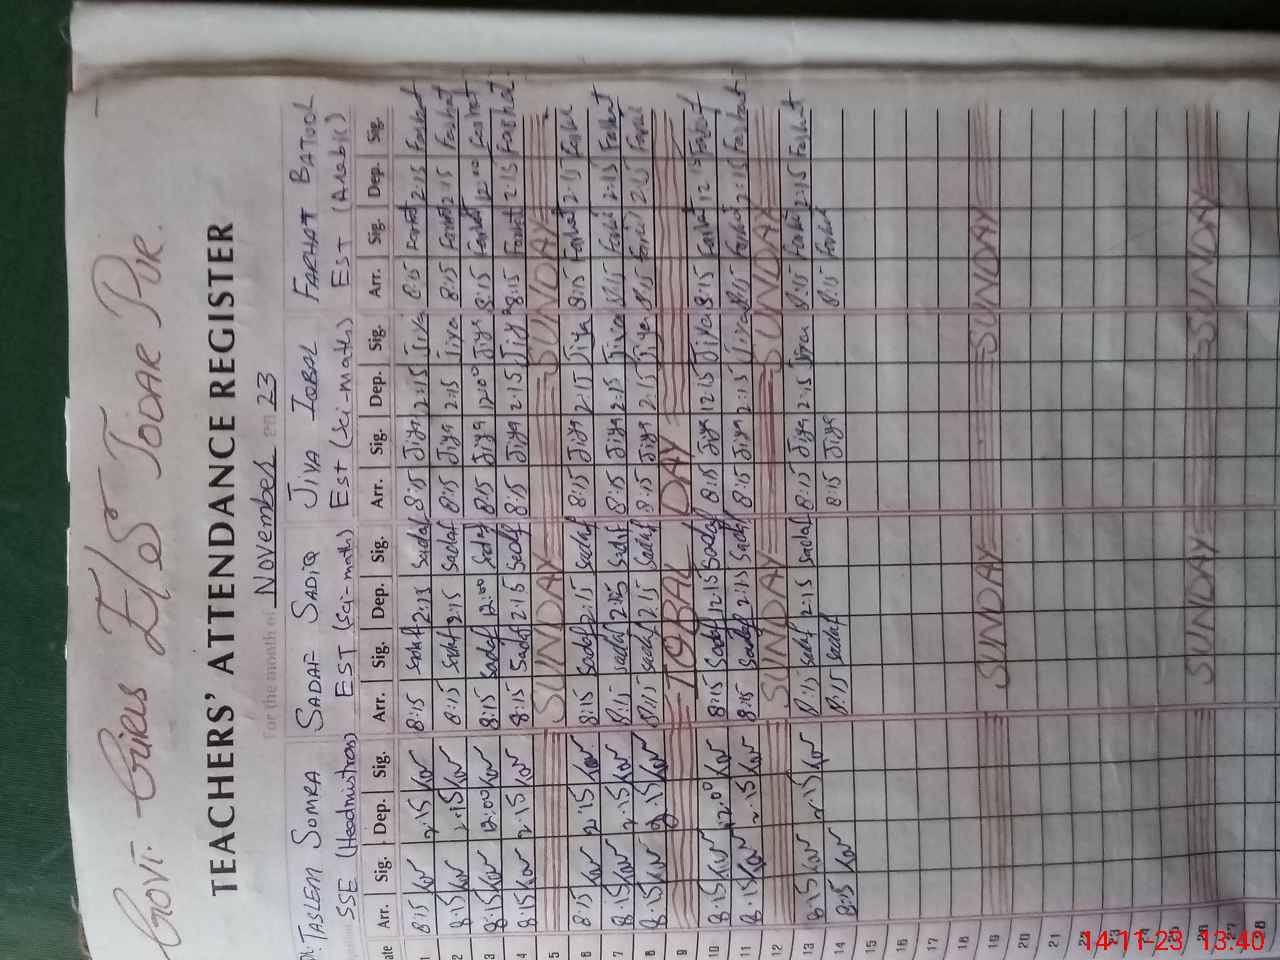 Govt. Girls E/S Jodar Pur.
TEACHERS' ATTENDANCE REGISTER
For the month of November 2023
TASLEEM SOMRA SADAF SADIQ JIYA IQBAL FARHAT BATOOL
SSE (Headmistress) EST (Sci-math) EST (Sci-maths) EST (Arabic)
Date Arr. Sig. Dep. Sig. Arr. Sig. Dep. Sig. Arr. Sig. Dep. Sig. Arr. Sig. Dep. Sig.
1 8:15 2:15 8:15 Sadaf 2:15 Sadaf 8:15 Jiya 2:15 Jiya 8:15 Farhat 2:15 Farhat
2 8:15 2:15 8:15 Sadaf 2:15 Sadaf 8:15 Jiya 2:15 Jiya 8:15 Farhat 2:15 Farhat
3 8:15 12:00 8:15 Sadaf 12:00 Sadaf 8:15 Jiya 12:00 Jiya 8:15 Farhat 12:00 Farhat
4 8:15 2:15 8:15 Sadaf 2:15 Sadaf 8:15 Jiya 2:15 Jiya 8:15 Farhat 2:15 Farhat
5 SUNDAY SUNDAY
6 8:15 2:15 8:15 Sadaf 2:15 Sadaf 8:15 Jiya 2:15 Jiya 8:15 Farhat 2:15 Farhat
7 8:15 2:15 8:15 Sadaf 2:15 Sadaf 8:15 Jiya 2:15 Jiya 8:15 Farhat 2:15 Farhat
8 8:15 2:15 8:15 Sadaf 2:15 Sadaf 8:15 Jiya 2:15 Jiya 8:15 Farhat 2:15 Farhat
9 IQBAL DAY
10 8:15 12:00 8:15 Sadaf 12:15 Sadaf 8:15 Jiya 12:15 Jiya 8:15 Farhat 12:15 Farhat
11 8:15 2:15 8:15 Sadaf 2:15 Sadaf 8:15 Jiya 2:15 Jiya 8:15 Farhat 2:15 Farhat
12 SUNDAY SUNDAY
13 8:15 2:15 8:15 Sadaf 2:15 Sadaf 8:15 Jiya 2:15 Jiya 8:15 Farhat 2:15 Farhat
14 8:15 8:15 Sadaf 8:15 Jiya 8:15 Farhat
15
16
17
18
19 SUNDAY SUNDAY SUNDAY
20
21
22
23
24
25
26 SUNDAY SUNDAY SUNDAY
27
28
14-11-23 13:40